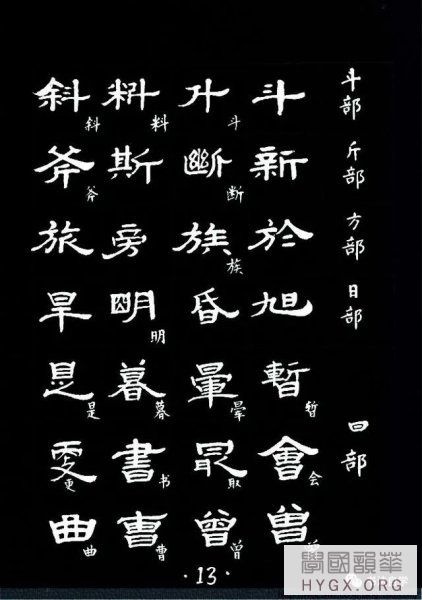 斗部 斗 斗 斗 料 料 斜 斜
斤部 新 斷 断 斯 斧 斧
方部 於 族 族 旁 旅
日部 旭 昏 明 明 旱
暫 暂 暈 晕 暮 暮 是 是
曰部 會 会 最 取 書 书 更 更
曾 曾 曾 曹 曹 曲 曲
·13·
學國韻華
HYGX.ORG